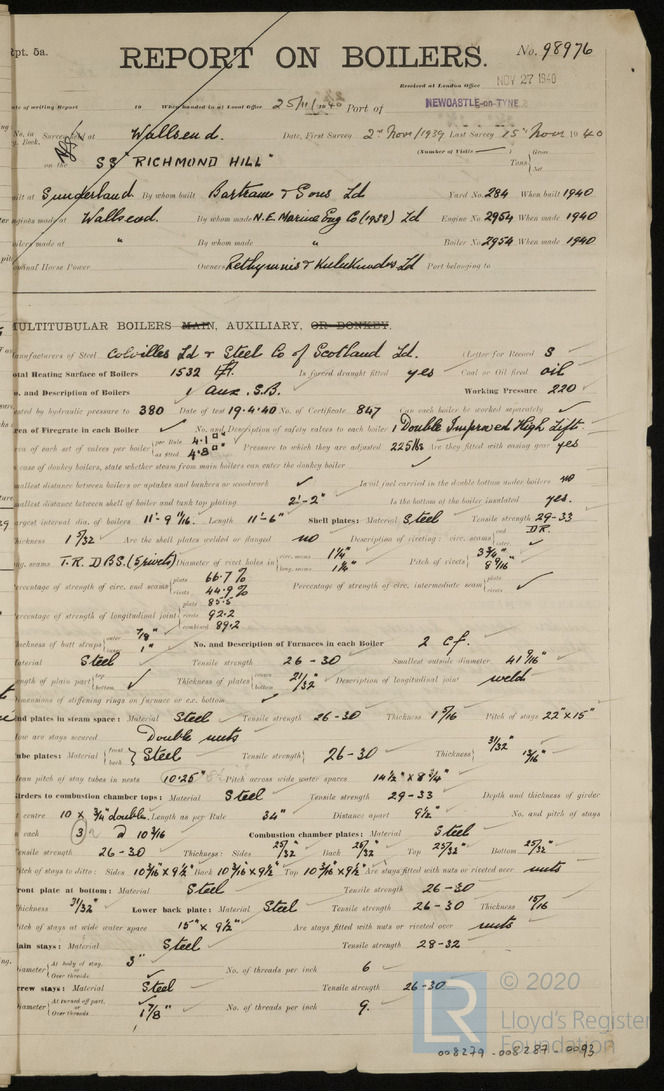 Rpt. 5a.
REPORT ON BOILERS.
No. 98976
Received at London Office
NOV 27 1940
Date of writing Report 19 When handed in at Local Office 25/11/1940 Port of NEWCASTLE-on-TYNE
No. in Survey held at Wallsend. Date, First Survey 2nd Nov/1939 Last Survey 15th Nov 1940
Reg. Book.
(Number of Visits)
on the SS "RICHMOND HILL"
Tons Gross
Net
Built at Sunderland By whom built Bartram & Sons Ld Yard No. 284 When built 1940
Engines made at Wallsend. By whom made N.E. Marine Eng Co (1938) Ld Engine No. 2954 When made 1940
Boilers made at " By whom made " Boiler No. 2954 When made 1940
Nominal Horse Power Owners Rethymnis & Kulukundis Ld Port belonging to
MULTITUBULAR BOILERS MAIN, AUXILIARY, OR DONKEY.
Manufacturers of Steel Colvilles Ld & Steel Co of Scotland Ld. (Letter for Record S
Total Heating Surface of Boilers 1532 Is forced draught fitted yes Coal or Oil fired oil
No. and Description of Boilers 1 aux. S.B. Working Pressure 220
Tested by hydraulic pressure to 380 Date of test 19.4.40 No. of Certificate 847 Can each boiler be worked separately ✓
Area of Firegrate in each Boiler ✓ No. and Description of safety valves to each boiler 1 Double Improved High Lift.
Area of each set of valves per boiler per Rule 4.1 □"
as fitted 4.8 □" Pressure to which they are adjusted 225 lbs Are they fitted with easing gear yes
In case of donkey boilers, state whether steam from main boilers can enter the donkey boiler ✓
Smallest distance between boilers or uptakes and bunkers or woodwork ✓ Is oil fuel carried in the double bottom under boilers no
Smallest distance between shell of boiler and tank top plating 2'-2" Is the bottom of the boiler insulated yes.
Largest internal dia. of boilers 11'-9 9/16. Length 11'-6" Shell plates: Material Steel Tensile strength 29-33
Thickness 1 5/32 Are the shell plates welded or flanged no Description of riveting: circ. seams end D.R.
inter. ✓
long. seams T.R. D.B.S. (5 rivets) Diameter of rivet holes in circ. seams 1 1/4"
long. seams 1 1/4" Pitch of rivets 3 3/4"
8 9/16"
Percentage of strength of circ. end seams plate 66.7 %
rivets 44.9 % Percentage of strength of circ. intermediate seam plate
rivets ✓
Percentage of strength of longitudinal joint plate 85.5
rivets 92.2
combined 89.2
Thickness of butt straps outer 7/8"
inner 1" No. and Description of Furnaces in each Boiler 2 c.f.
Material Steel Tensile strength 26-30 Smallest outside diameter 41 9/16"
Length of plain part top
bottom ✓ Thickness of plates crown
bottom 21/32" Description of longitudinal joint weld
Dimensions of stiffening rings on furnace or c.c. bottom ✓
End plates in steam space: Material Steel Tensile strength 26-30 Thickness 1 5/16 Pitch of stays 22" x 15"
How are stays secured Double nuts
Tube plates: Material front
back Steel Tensile strength 26-30 Thickness 31/32"
13/16"
Mean pitch of stay tubes in nests 10.25" Pitch across wide water spaces 14 1/2" x 8 3/4"
Girders to combustion chamber tops: Material Steel Tensile strength 29-33 Depth and thickness of girder
at centre 10 x 3/4" double. Length as per Rule 34" Distance apart 9 1/2" No. and pitch of stays
in each 3 @ 10 3/16 Combustion chamber plates: Material Steel
Tensile strength 26-30 Thickness: Sides 25/32" Back 25/32" Top 25/32" Bottom 25/32"
Pitch of stays to ditto: Sides 10 3/16" x 9 1/2" Back 10 3/16" x 9 1/2" Top 10 3/16" x 9 1/2" Are stays fitted with nuts or riveted over nuts
Front plate at bottom: Material Steel Tensile strength 26-30
Thickness 31/32" Lower back plate: Material Steel Tensile strength 26-30 Thickness 15/16
Pitch of stays at wide water space 15" x 9 1/2" Are stays fitted with nuts or riveted over nuts
Main stays: Material Steel Tensile strength 28-32
Diameter At body of stay, or Over threads 3" No. of threads per inch 6
Screw stays: Material Steel Tensile strength 26-30
Diameter At turned off part, or Over threads 1 7/8" No. of threads per inch 9.
LR
© 2020
Lloyd's Register
Foundation
008279-008287-0093